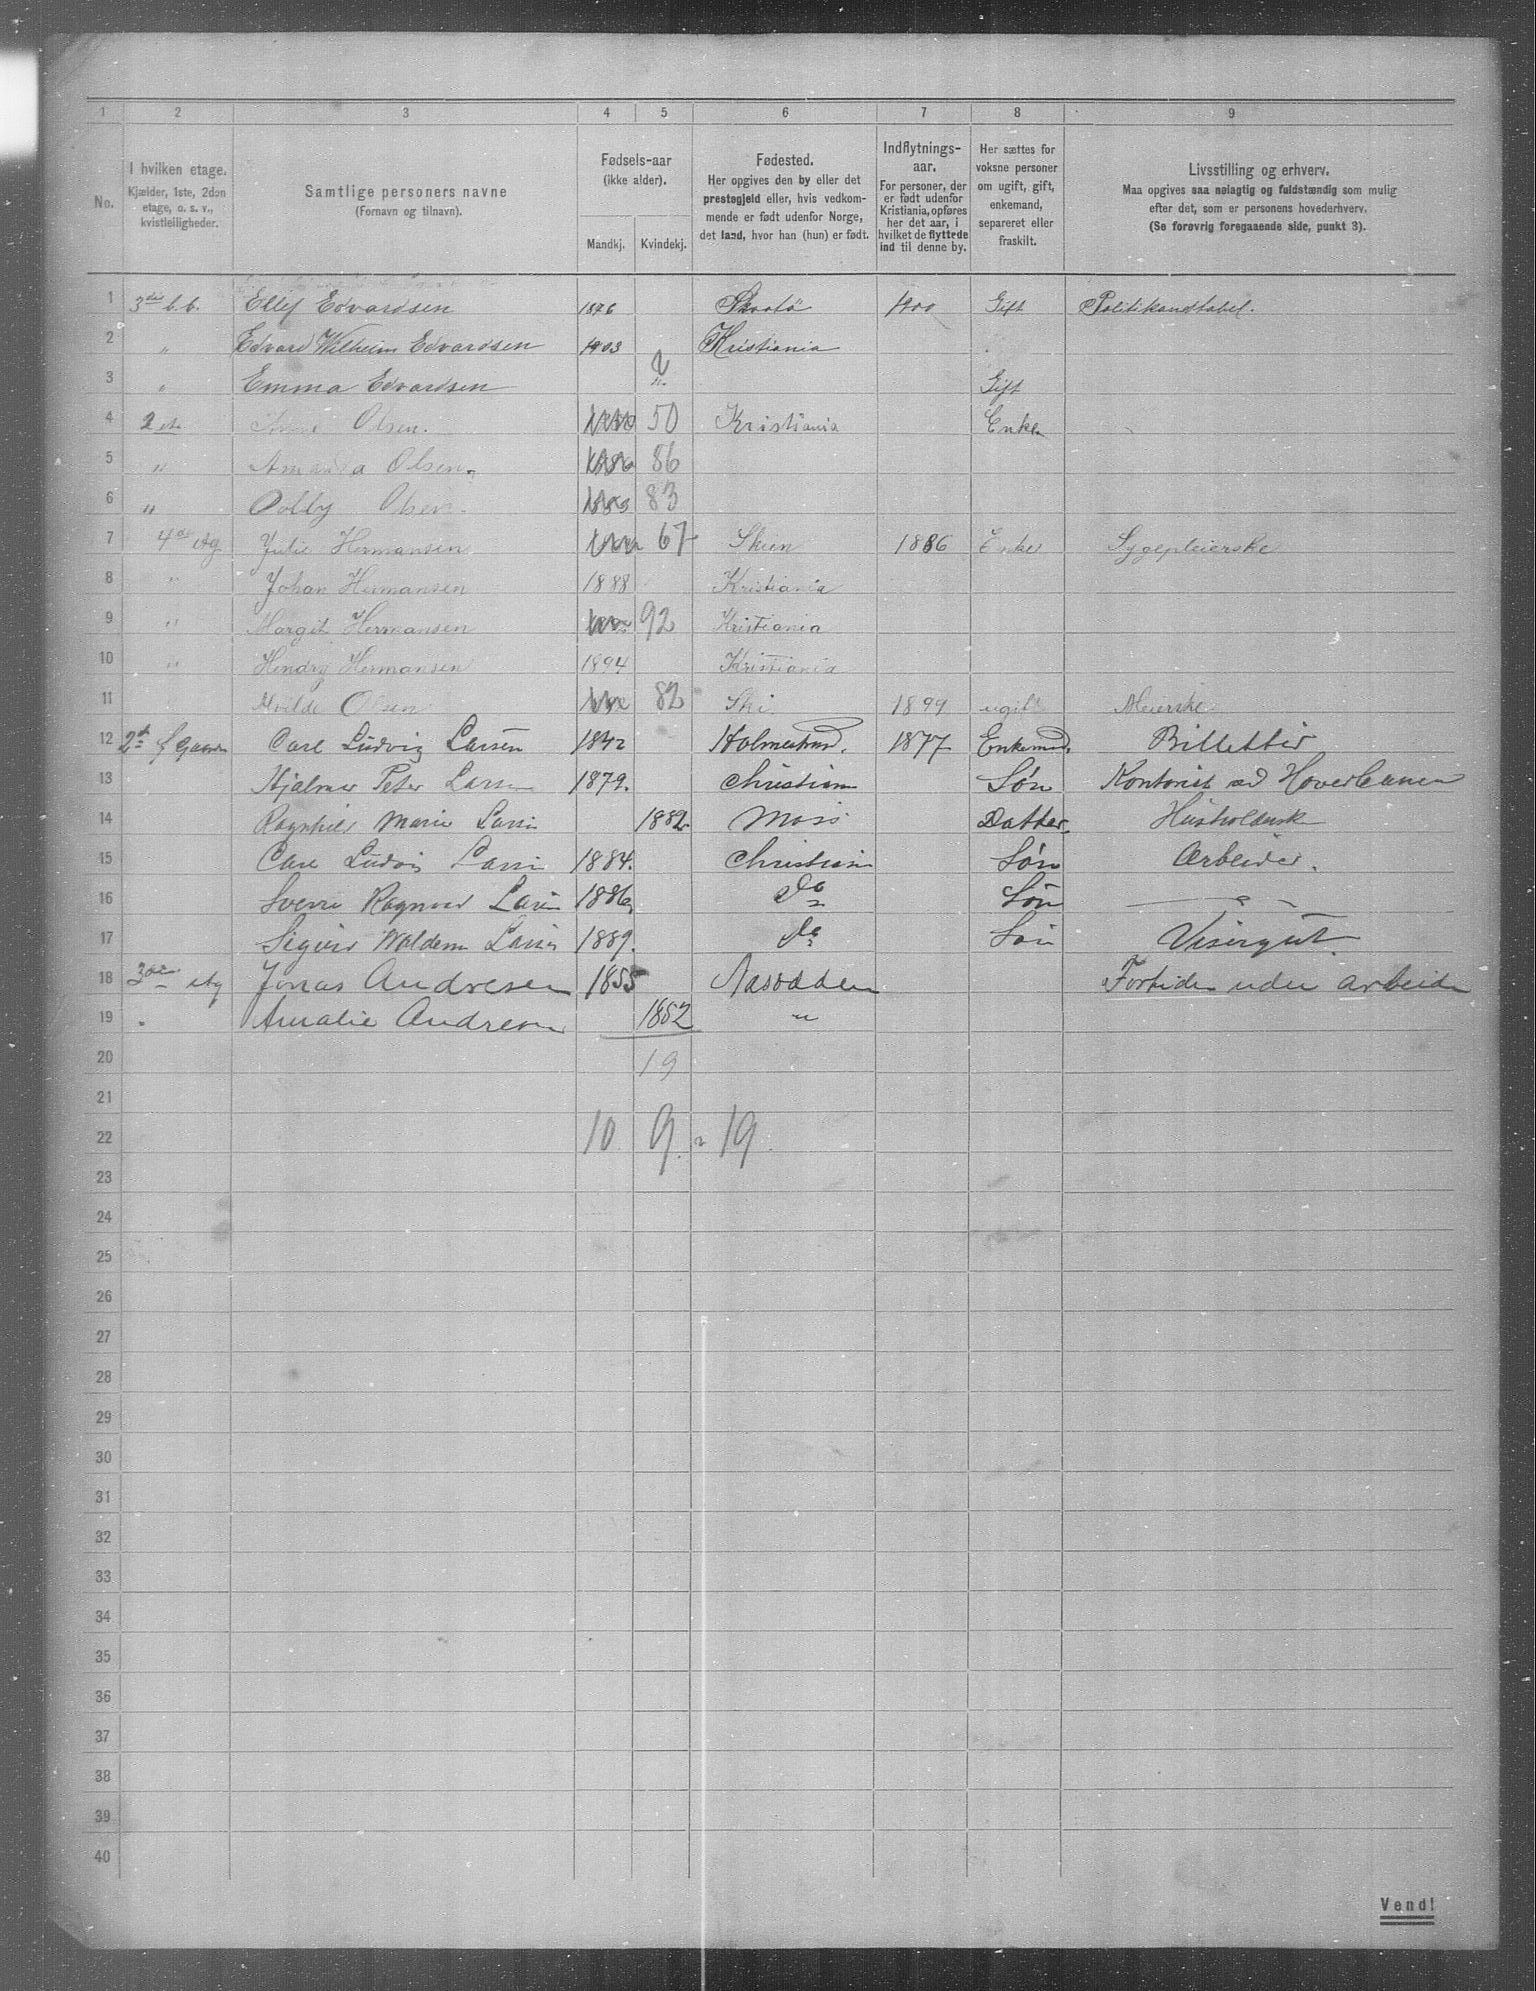 1 2 3 4 5 6 7 8 9
No.
I hvilken etage.
Kjælder, 1ste, 2den
etage, o. s. v.,
kvistleiligheder.
Samtlige personers navne
(Fornavn og tilnavn).
Fødsels-aar
(ikke alder).
Mandkj. Kvindekj.
Fødested.
Her opgives den by eller det
prestegjeld eller, hvis vedkom-
mende er født udenfor Norge,
det land, hvor han (hun) er født.
Indflytnings-
aar.
For personer, der
er født udenfor
Kristiania, opføres
her det aar, i
hvilket de flyttede
ind til denne by.
Her sættes for
voksne personer
om ugift, gift,
enkemand,
separeret eller
fraskilt.
Livsstilling og erhverv.
Maa opgives saa nøiagtig og fuldstændig som mulig
efter det, som er personens hovederhverv.
(Se forøvrig foregaaende side, punkt 3).
1 3die b.b. Ellef Edvardsen 1876 Skaatø 1900 Gift Politikonstabel.
2 " Edvard Wilhelm Edvardsen 1903 Kristiania
3 " Emma Edvardsen Gift
4 2 et. Olsen. 50 Kristiania Enke
5 " Amanda Olsen. 86
6 " Dolly Olsen. 83
7 4de etg Julie Hermansen 67 Skien 1886 Enke Sygepleierske
8 " Johan Hermansen 1888 Kristiania
9 " Margit Hermansen 92 Kristiania
10 " Hendry Hermansen 1894 Kristiania
11 Olsen 82 Ski 1899 ugift Meierske
12 2d f Gaarden Carl Ludvig Larsen 1842 Holmestrand. 1877 Enkemd. Billettør
13 Hjalmar Peter Larsen 1879. Christiania Søn Kontorist ved Hovedbanen
14 Ragnhild Marie Larsen 1882 Moss Datter. Husholderske
15 Carl Ludvig Larsen 1884. Christiania Søn Arbeider.
16 Sverre Ragnvald Larsen 1886 do Søn — " —
17 Sigurd Waldemar Larsen 1889. do Søn Visergut
18 3die etg Jonas Andresen 1855 Næsodden Forhiden uden arbeide
19 " Amalie Andresen 1852 "
20 19
21
22 10 9 = 19.
23
24
25
26
27
28
29
30
31
32
33
34
35
36
37
38
39
40
Vend!